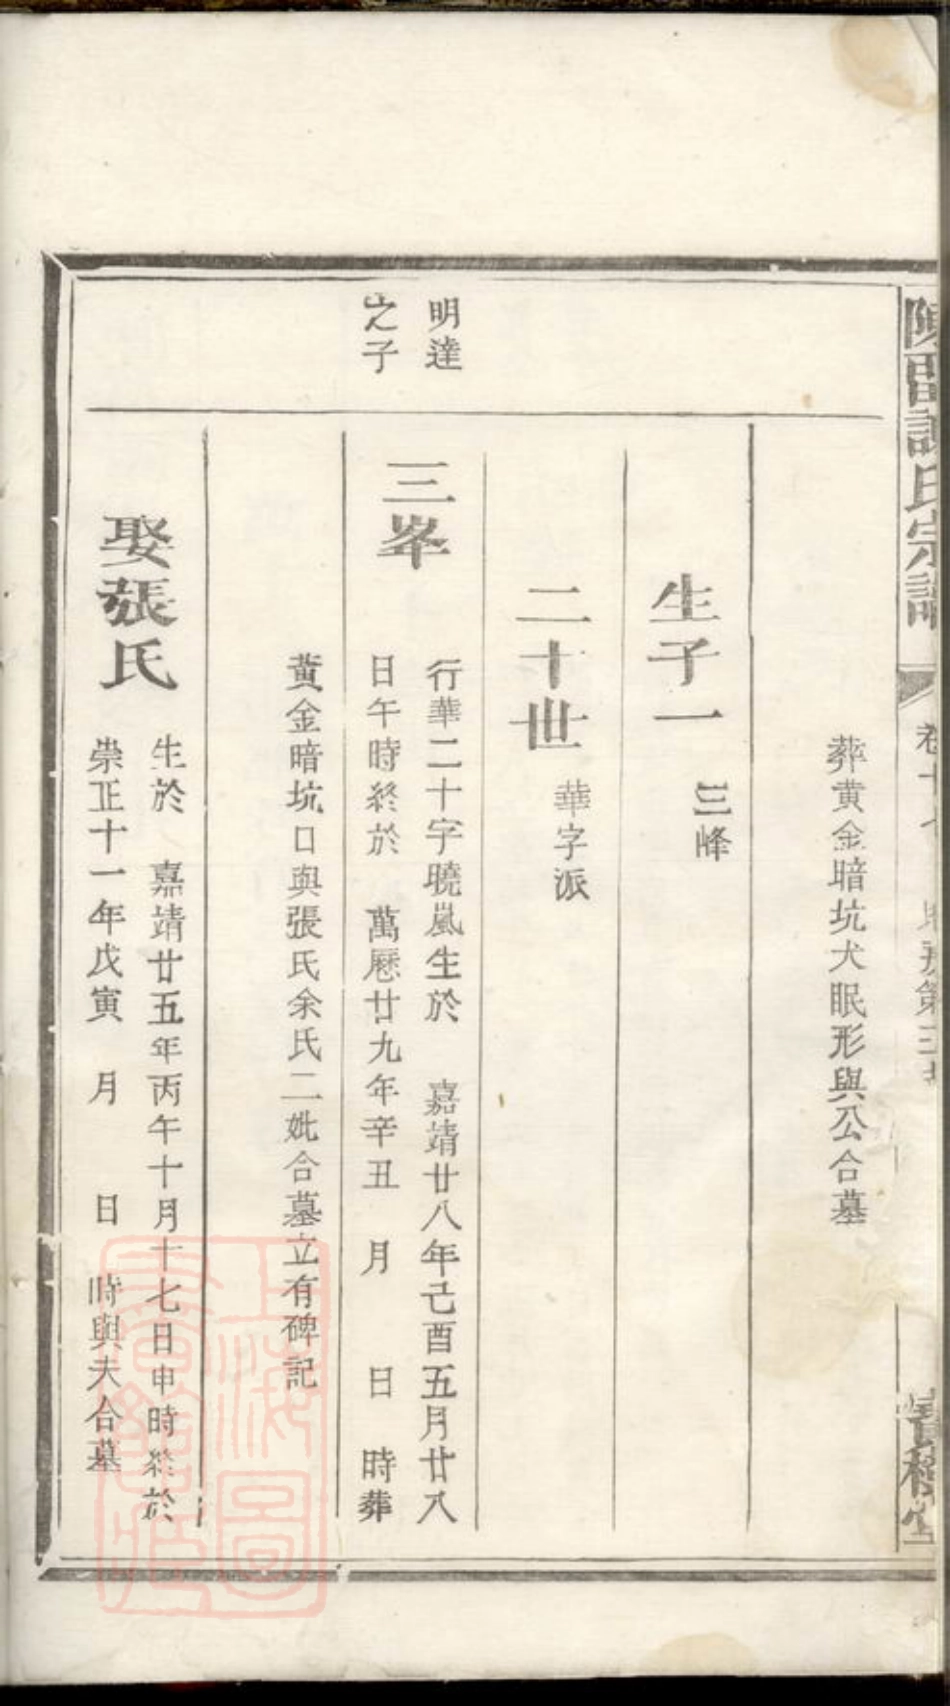 氏宗譜
葬黄金暗坑犬眠形與公合墓
生子一
三峰
二十世
華字派
明達
之子
三峯
行華二十字曉嵐生於 嘉靖廿八年己酉五月廿八
日午時終於 萬厯廿九年辛丑 月 日 時葬
黄金暗坑口與張氏余氏二妣合墓立有碑記
娶張氏
生於 嘉靖廿五年丙午十月十七日申時終於
崇正十一年戊寅 月 日 時與夫合墓
上海圖
書館藏